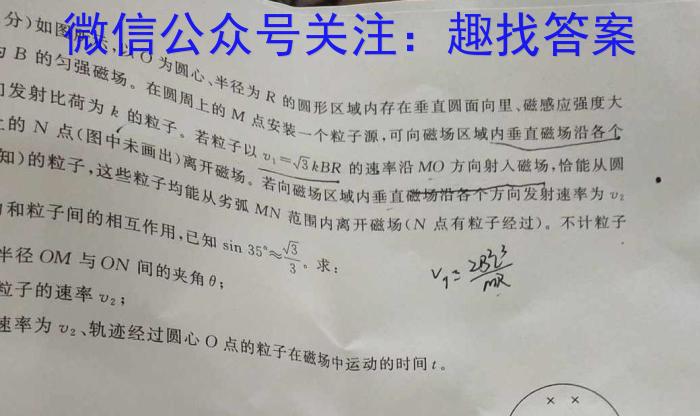 微信公众号关注：趣找答案
分)如图所示,以O为圆心、半径为R的圆形区域内存在垂直圆面向里、磁感应强度大
为B的匀强磁场。在圆周上的M点安装一个粒子源,可向磁场区域内垂直磁场沿各个
发射比荷为k的粒子。若粒子以v₁=√3kBR的速率沿MO方向射入磁场,恰能从圆
上的N点(图中未画出)离开磁场。若向磁场区域内垂直磁场沿各个方向发射速率为v₂
知)的粒子,这些粒子均能从劣弧MN范围内离开磁场(N点有粒子经过)。不计粒子
和粒子间的相互作用,已知sin 35°≈√3/3。求:
半径OM与ON间的夹角θ;
粒子的速率v₂;
速率为v₂、轨迹经过圆心O点的粒子在磁场中运动的时间t。
× ×